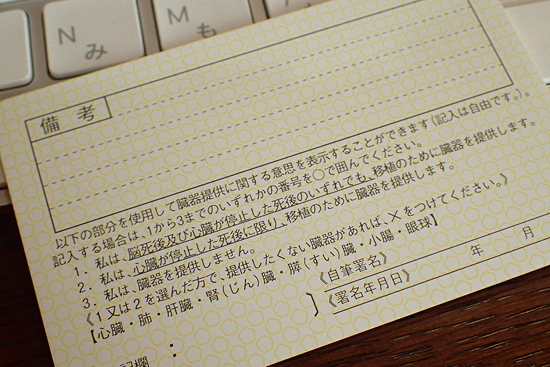 N
み
M
も
備考
以下の部分を使用して臓器提供に関する意思を表示することができます(記入は自由です。)。
記入する場合は、1から3までのいずれかの番号を〇で囲んでください。
1. 私は、脳死後及び心臓が停止した死後のいずれでも、移植のために臓器を提供します。
2. 私は、心臓が停止した死後に限り、移植のために臓器を提供します。
3. 私は、臓器を提供しません。
《1又は2を選んだ方で、提供したくない臓器があれば、×をつけてください。》
【心臓・肺・肝臓・腎(じん)臓・膵(すい)臓・小腸・眼球】
記欄:
《自筆署名》
《署名年月日》 年 月